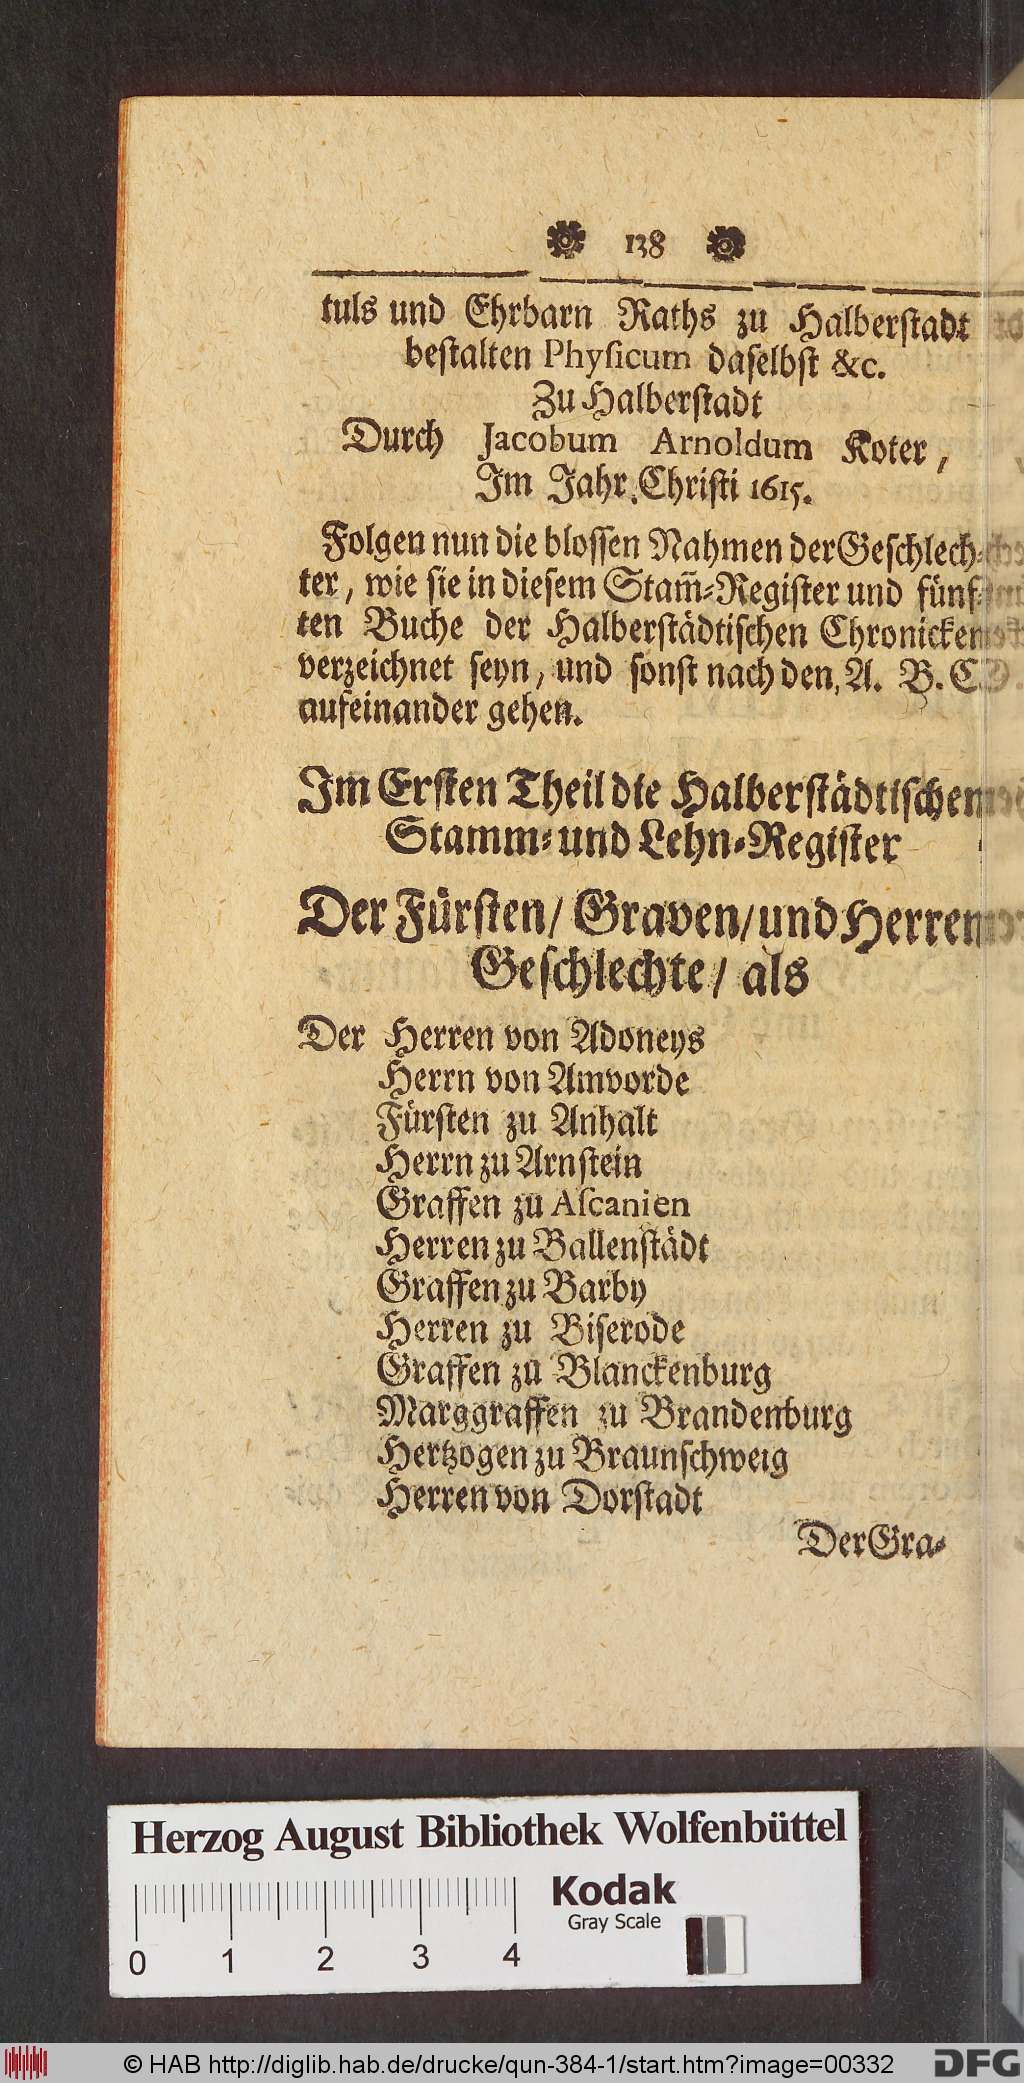 138
tuls und Ehrbarn Raths zu Halberstadt
bestalten Physicum daselbst &c.
Zu Halberstadt
Durch Jacobum Arnoldum Koter,
Im Jahr Christi 1615.
Folgen nun die blossen Nahmen der Geschlech-
ter, wie sie in diesem Stam̃-Register und fünf-
ten Buche der Halberstädtischen Chronicken
verzeichnet seyn, und sonst nach den A. B. C.
aufeinander gehen.
Im Ersten Theil die Halberstädtischen
Stamm- und Lehn-Register
Der Fürsten/ Graven/ und Herren
Geschlechte/ als
Der Herren von Adoneys
Herrn von Amvorde
Fürsten zu Anhalt
Herrn zu Arnstein
Graffen zu Ascanien
Herren zu Ballenstädt
Graffen zu Barby
Herren zu Biserode
Graffen zu Blanckenburg
Marggraffen zu Brandenburg
Hertzogen zu Braunschweig
Herren von Dorstadt
Der Gra-
Herzog August Bibliothek Wolfenbüttel
Kodak
Gray Scale
0 1 2 3 4
© HAB http://diglib.hab.de/drucke/qun-384-1/start.htm?image=00332
DFG